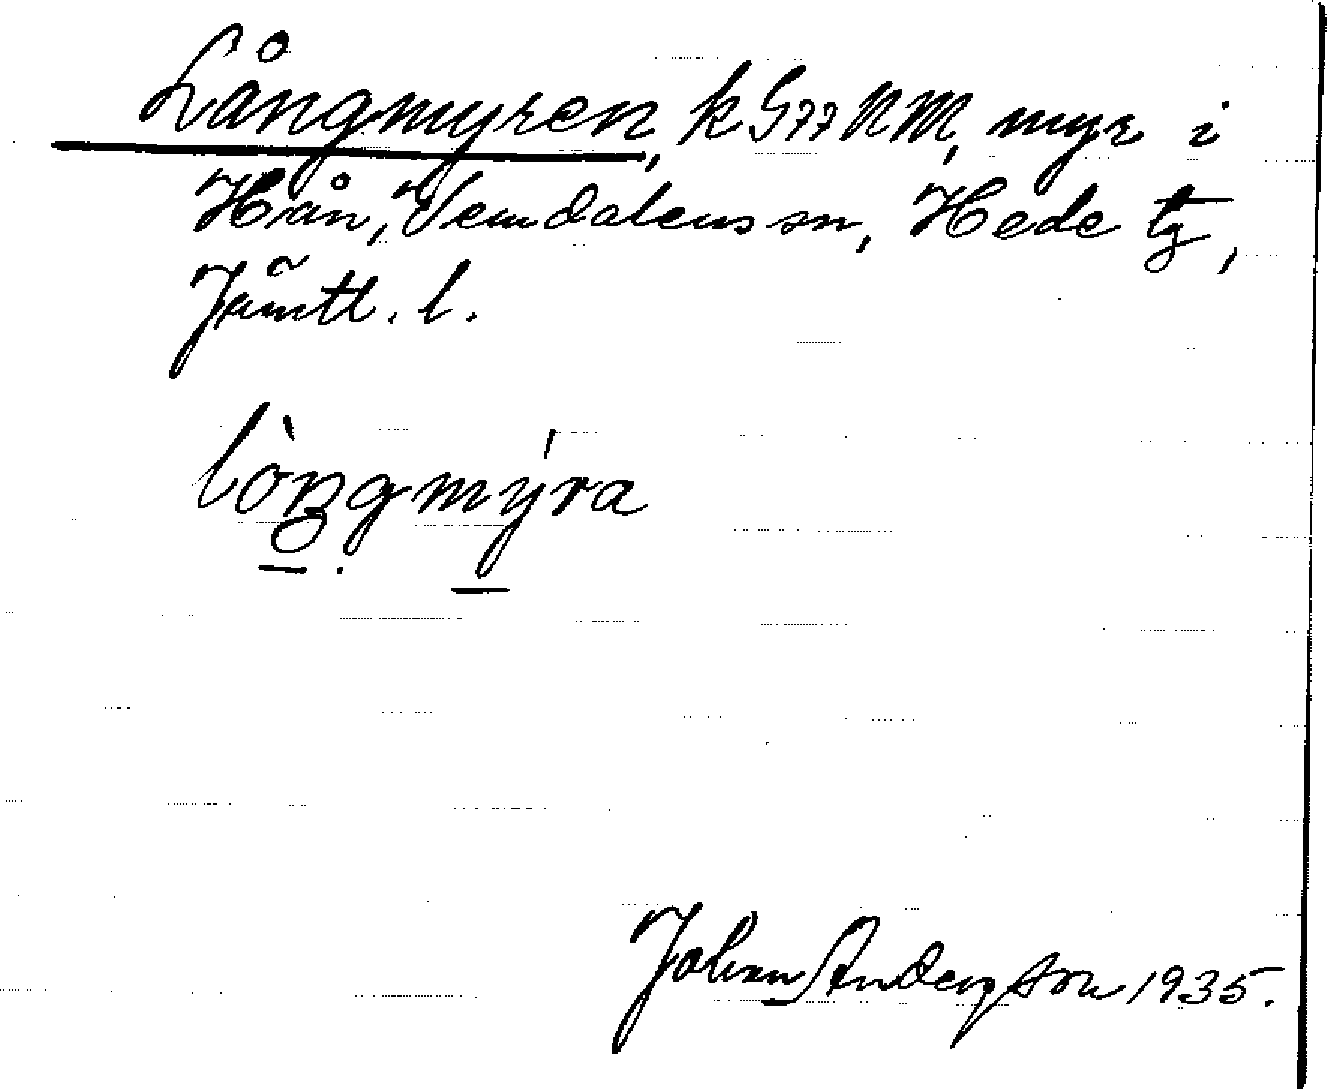 Långmyren, k G77 NM, myr i
Hån, Vemdalens sn, Hede tg,
Jämtl. l.
lòŋgmýra
Johan Anderzson 1935.